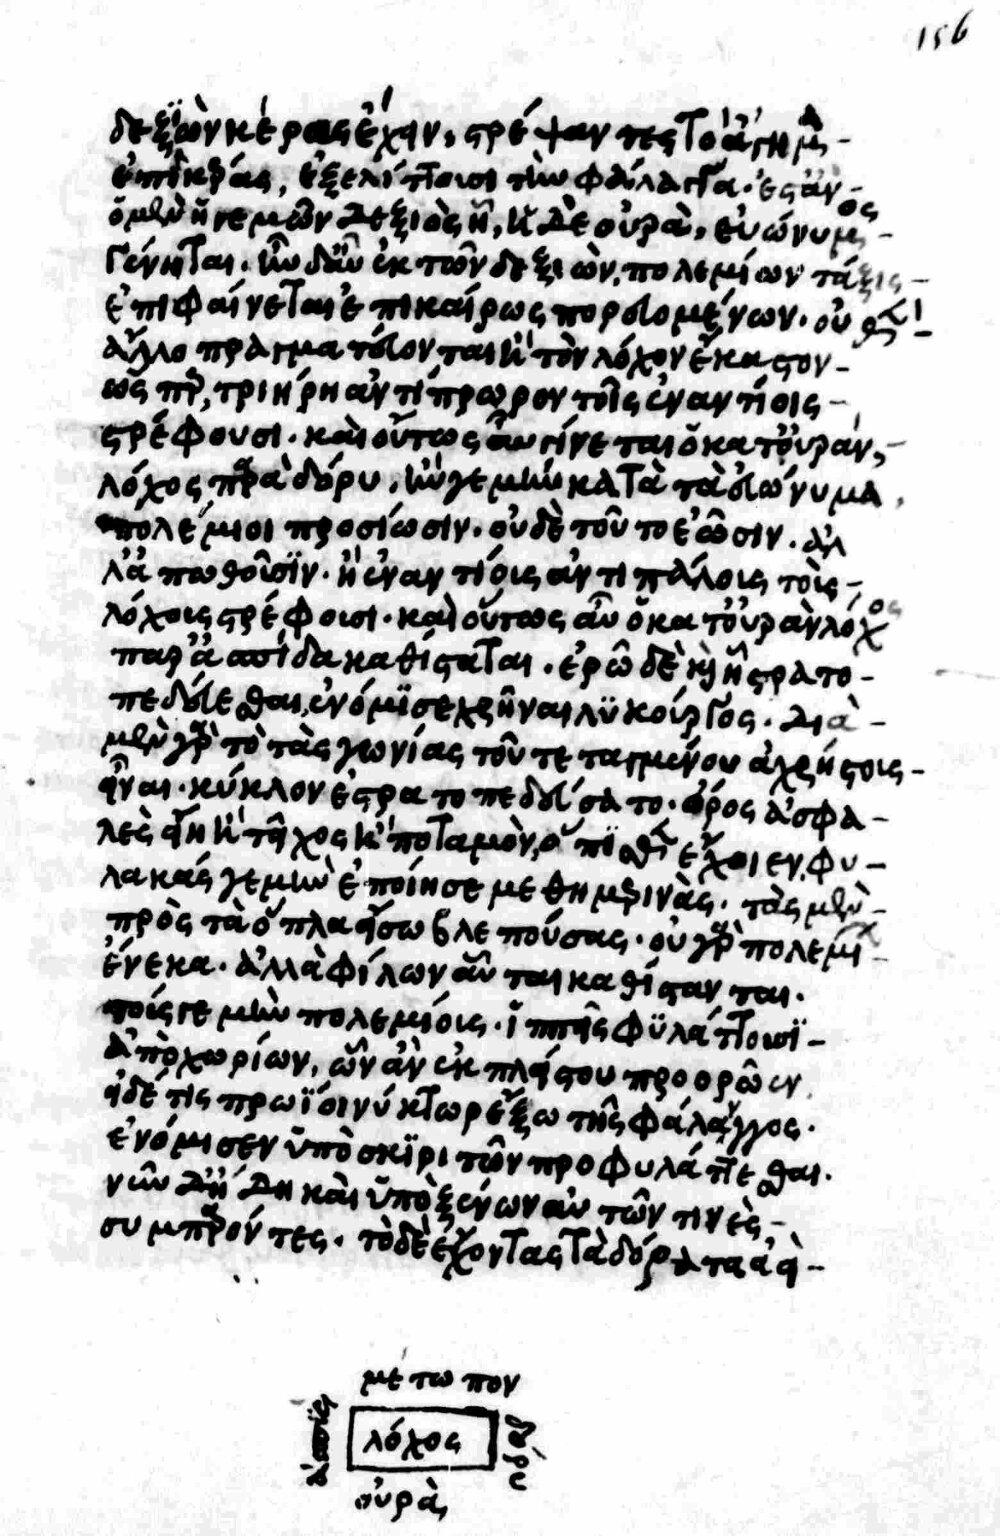 156
δεξιὸν κέρας ἔχειν, στρέψαντες τὸ ἄγημα
ἐπὶ κέρας, ἐξελίττουσι τὴν φάλαγγα. ἔστ' ἂν
ὁ μὲν ἡγεμὼν δεξιὸς ᾖ, ἡ δὲ οὐρὰ, εὐώνυμος
γένηται. ἢν δ' αὖ ἐκ τῶν δεξιῶν, πολεμίων τάξις
ἐπιφαίνεται ἐπικαίρως πορευομένων. οὐθὲν
ἄλλο πραγματεύονται ἢ τὸν λόχον ἕκαστον
ὡς περ, τριήρη ἀντίπρωρον τοῖς ἐναντίοις
στρέφουσι. καὶ οὕτως αὖ γίνεται ὁ κατ' οὐρὰν,
λόχος παρὰ δόρυ. ἢν γε μὴν κατὰ τὰ εὐώνυμα
πολέμιοι προσίωσιν. οὐδὲ τοῦτο ἐῶσιν. ἀλ
λὰ πωθοῦσϊν. ἢ ἐναντίοις ἀντιπάλοις τοὺς
λόχους στρέφουσι. καὶ οὕτως αὖ ὁ κατ' οὐρὰν λόχος
παρ' ἀσπίδα καθίσταται. ἐρῶ δὲ καὶ ᾗ στρατο
πεδεύεσθαι, ἐνόμϊσε χρῆναι λϋκοῦργος. διὰ
μὲν γὰρ τὸ τὰς γωνίας τοῦ τεταγμένου ἀχρήστους
εἶναι. κύκλον ἐστρατοπεδεύσατο. ὄρος ἀσφα
λὲς εἴη ἢ τεῖχος ἢ ποταμὸν, ὄπϊσθεν ἔχοιεν. φυ
λακάς γε μὴν ἐποίησε μεθημερινὰς. τὰς μὲν
πρὸς τὰ ὅπλα εἴσω βλεπούσας. οὐ γὰρ πολεμίων
ἕνεκα. ἀλλὰ φίλων αὗται καθίστανται.
τούς γε μὴν πολεμίους. ἱππεῖς φϋλάττουσϊ
ἀπὸ χωρίων, ὧν ἂν ἐκ πλείστου προορῶεν
εἰ δέ τις προΐοι νύκτωρ ἔξω τῆς φάλαγγος.
ἐνόμισεν ὑπὸ σκϊρι τῶν προφυλάττεσθαι.
νῦν δ' ἤδη καὶ ὑπὸ ξένων αὐτῶν τινὲς
συμπαρόντες. τὸ δὲ ἔχοντας τὰ δόρατα ἀεὶ
μέτωπον
ἀσπίς
λόχος
δόρυ
οὐρὰ